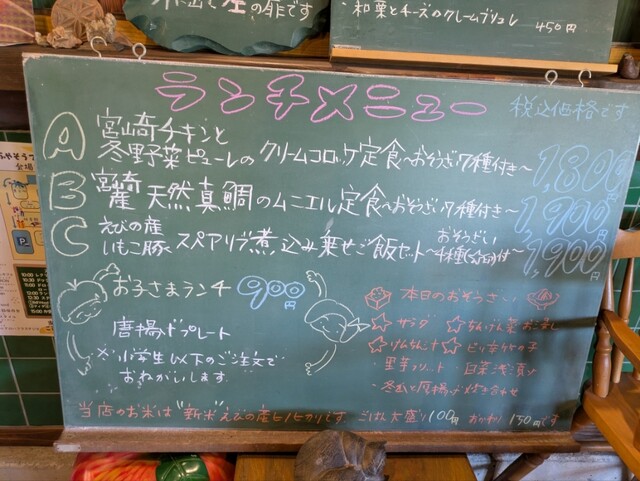 左の扉です
・和栗とチーズのクレームブリュレ 450円
ランチメニュー 税込価格です
A 宮崎チキンと
冬野菜ピューレのクリームコロッケ定食〜おそうざい7種付き〜 1,800円
B 宮崎産 天然真鯛のムニエル定食〜おそうざい7種付き〜 1,900円
C えびの産いもこ豚 スペアリブ煮込み乗せご飯セット〜おそうざい4種(☆印)付〜 1,900円
お子さまランチ 900円
唐揚げプレート
※小学生以下のご注文で
おねがいします
本日のおそうざい
☆サラダ ☆ちんげん菜お浸し
☆けんちん汁 ☆ピリ辛竹の子
・里芋フリット ・白菜浅漬け
・冬瓜と厚揚げの炊き合わせ
当店のお米は"新米"えびの産ヒノヒカリです。ごはん大盛り100円 おかわり150円です
P